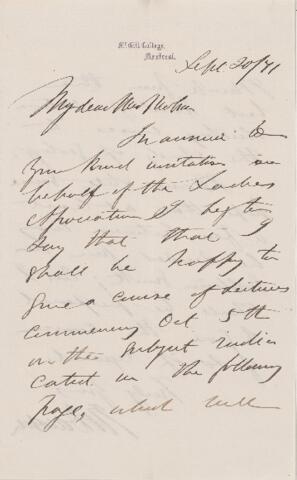 McGill College,
Montreal.
Sept 20/71
My dear Mrs
In answer to
your kind invitation on
behalf of the Ladies
Association I beg to
say that that I
shall be happy to
give a course of lectures
commencing Oct 5th
on the subject indi-
cated on the following
page, which will